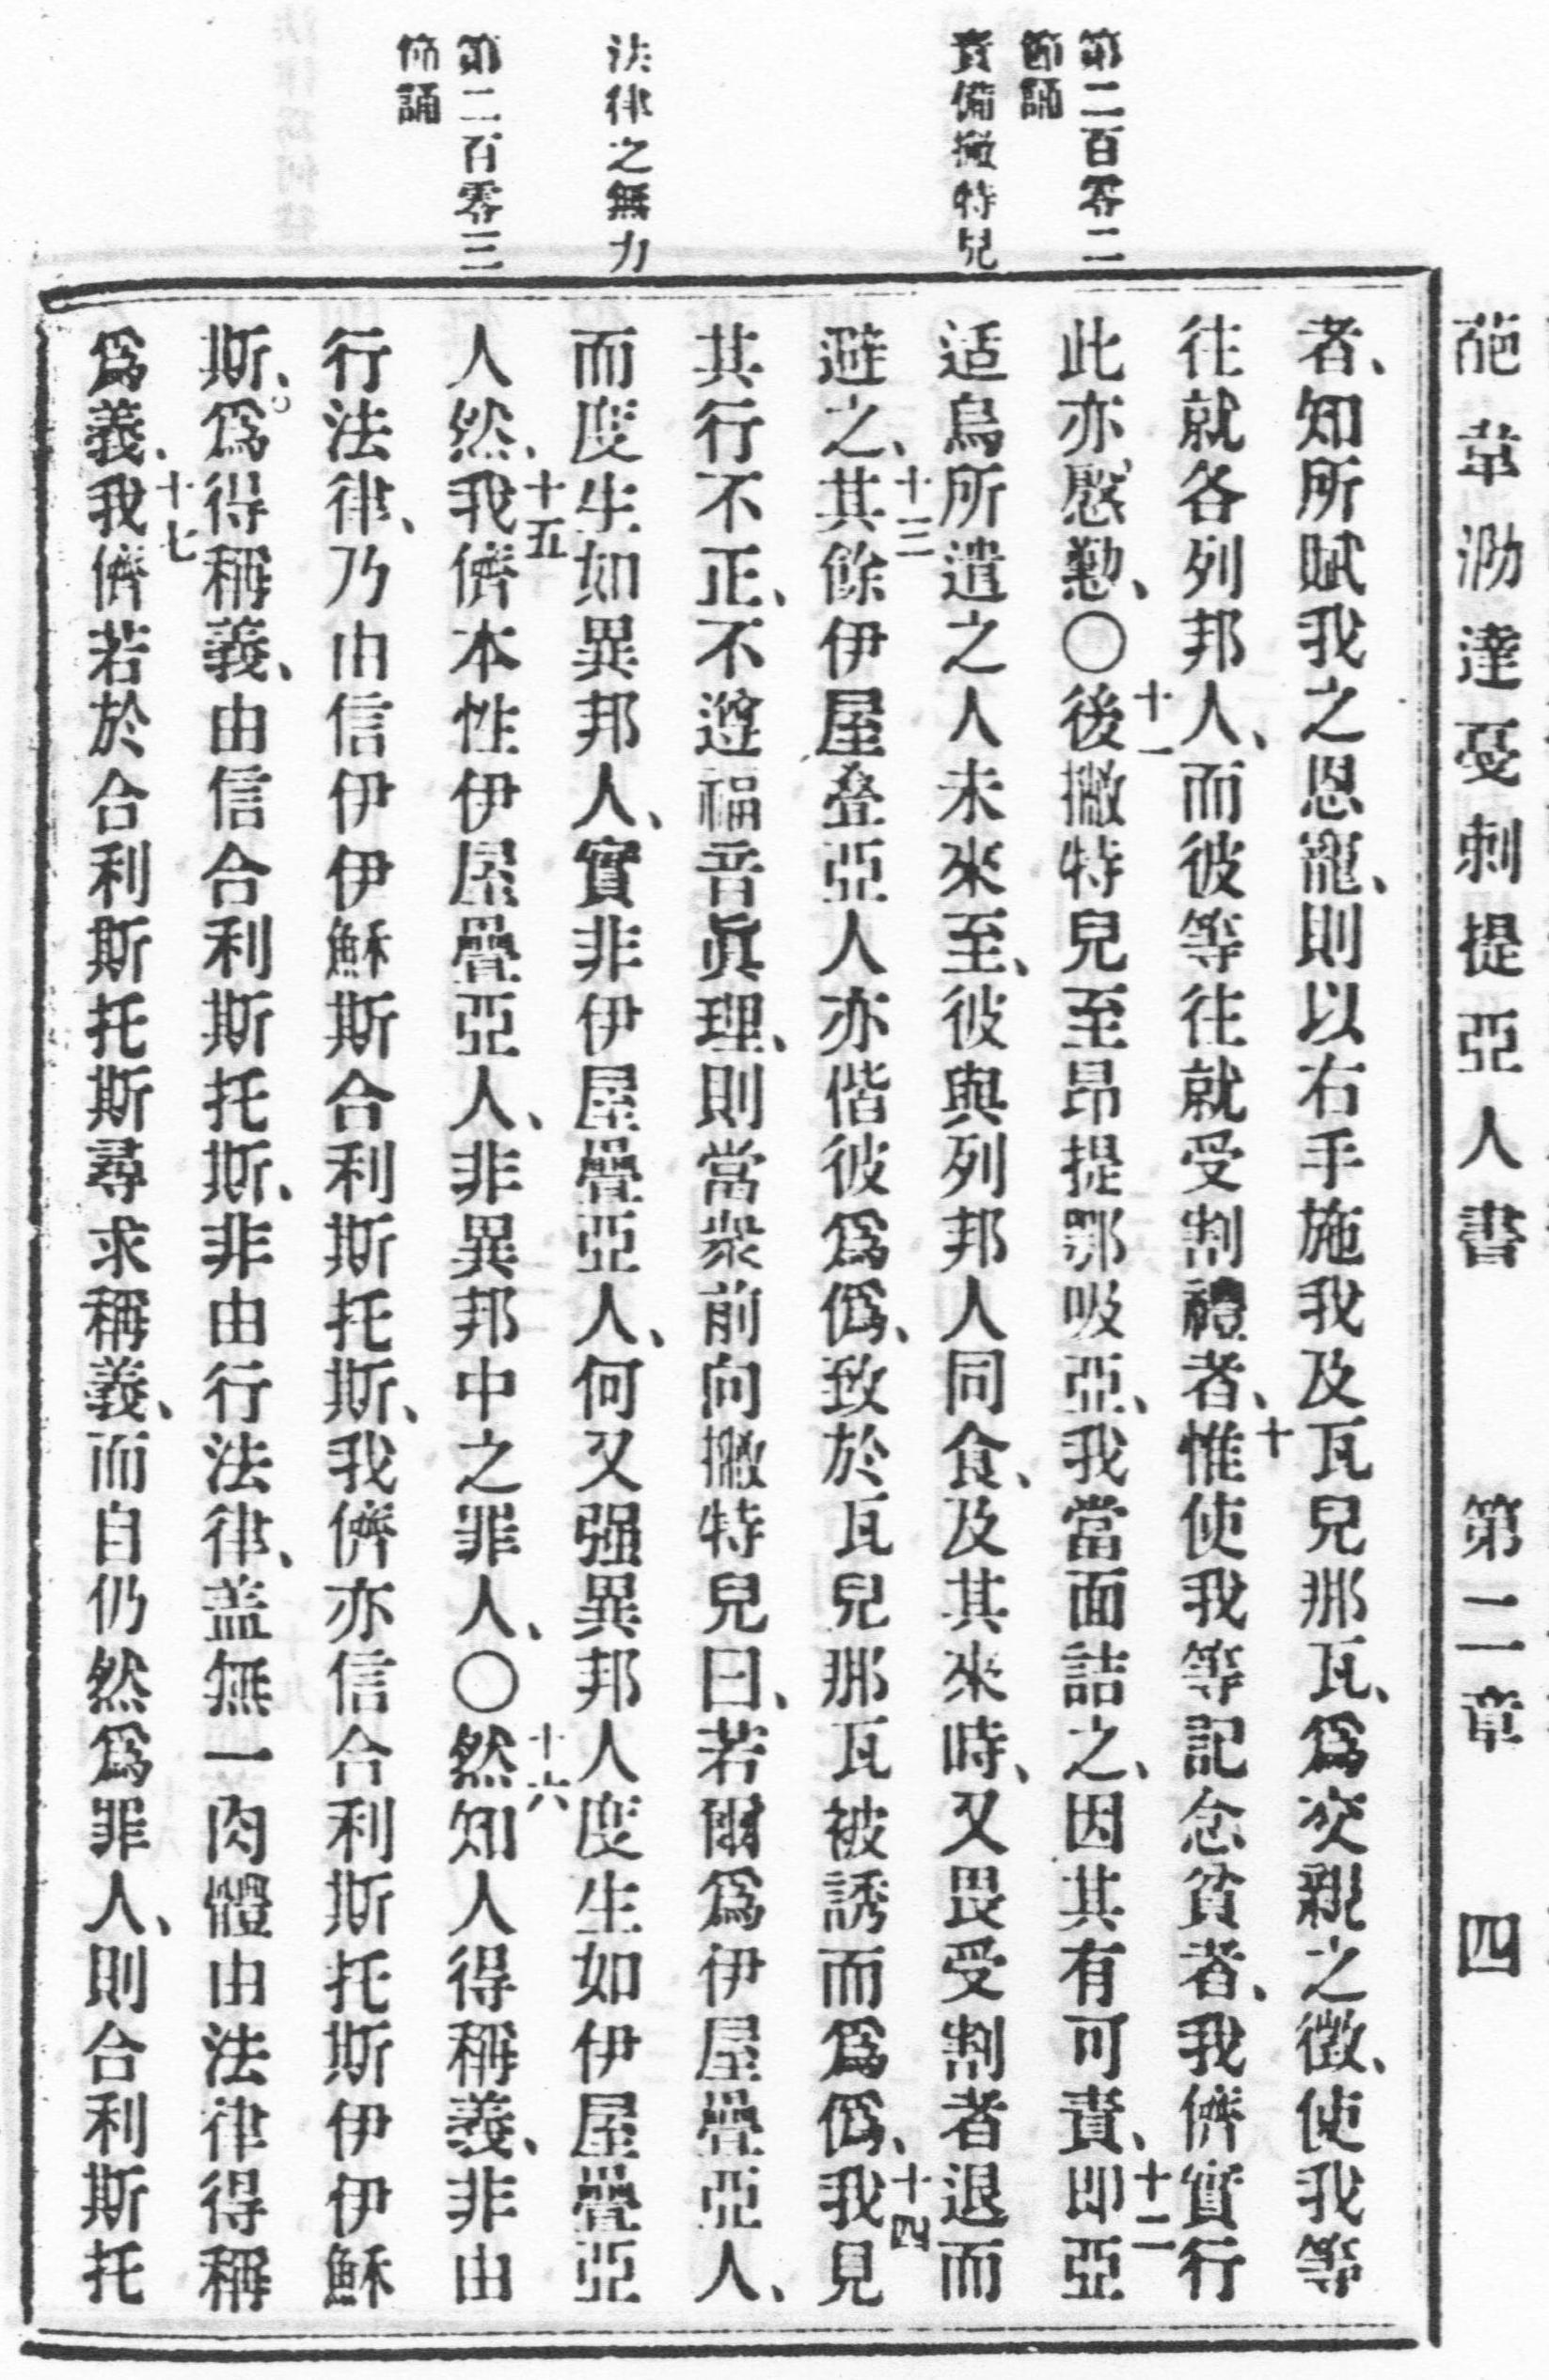 葩韋泐達戞剌提亞人書 第二章 四
第二百零二
節誦
責備撇特兒
法律之無力
第二百零三
節誦
者、知所賦我之恩寵、則以右手施我及瓦兒那瓦、爲交親之徵、使我等
往就各列邦人、而彼等往就受割禮者、十惟使我等記念貧者、我儕實行
此亦慇懃、○十一後撇特兒至昂提鄂吸亞、我當面詰之、因其有可責、十二即亞
适烏所遣之人未來至、彼與列邦人同食、及其來時、又畏受割者退而
避之、十三其餘伊屋疊亞人亦偕彼爲僞、致於瓦兒那瓦被誘而爲僞、十四我見
其行不正、不遵福音眞理、則當衆前向撇特兒曰、若爾爲伊屋疊亞人、
而度生如異邦人、實非伊屋疊亞人、何又强異邦人度生如伊屋疊亞
人然、十五我儕本性伊屋疊亞人、非異邦中之罪人、○十六然知人得稱義、非由
行法律、乃由信伊伊穌斯合利斯托斯、我儕亦信合利斯托斯伊伊穌
斯、爲得稱義、由信合利斯托斯、非由行法律、盖無一肉體由法律得稱
爲義、十七我儕若於合利斯托斯尋求稱義、而自仍然爲罪人、則合利斯托